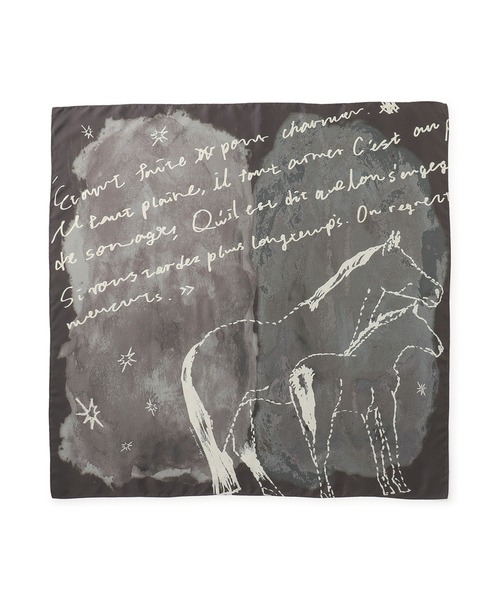 Etant faite pour charmer.
Il faut plaire, il faut aimer C'est au p
de son ages, Qu'il est dit que lon s'engag
Si vous tardez plus longtemps. On regrett
meneurs. »